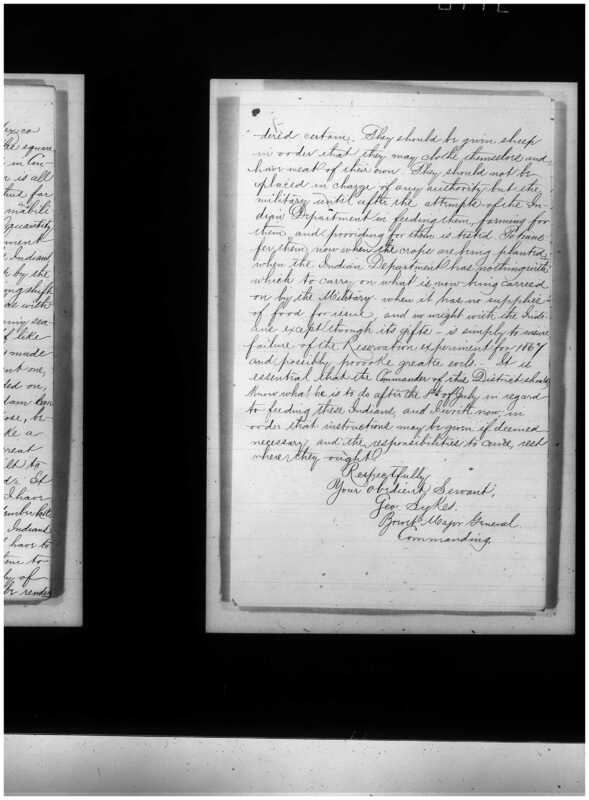 exico
the square
in Con
r is all
ture far
mobili
Quantity
ment
Indians
k by the
as with
sea-
of like
made
nt one,
ded on,
ose, or
ke a
reat
I have
Indians
have to
time to
by of
be render
dered certain. They should be given sheep
in order that they may clothe themselves and
have meat of their own. They should not be
placed in charge of any authority but the
military until after the attempts of the In-
dian Department in feeding them, farming for
them, and providing for them is tested. To trans-
fer them now when the crops are being planted,
when the Indian Department has nothing with
which to carry on what is now being carried
on by the Military when it has no supplies
of food for issue, and no weight with the Indi-
ans except through its gifts - is simply to ensure
failure of the Reservation experiment for 1867
and possibly provoke greater evils. It is
essential that the Commander of this District should
know what he is to do after the 1st of July in regard
to feeding these Indians, and I write now in
order that instructions may be given if deemed
necessary and the responsibilities to ensue, rest
where they ought.
Respectfully
Your obedient Servant,
Geo. Sykes.
Brevt Major General
Commanding